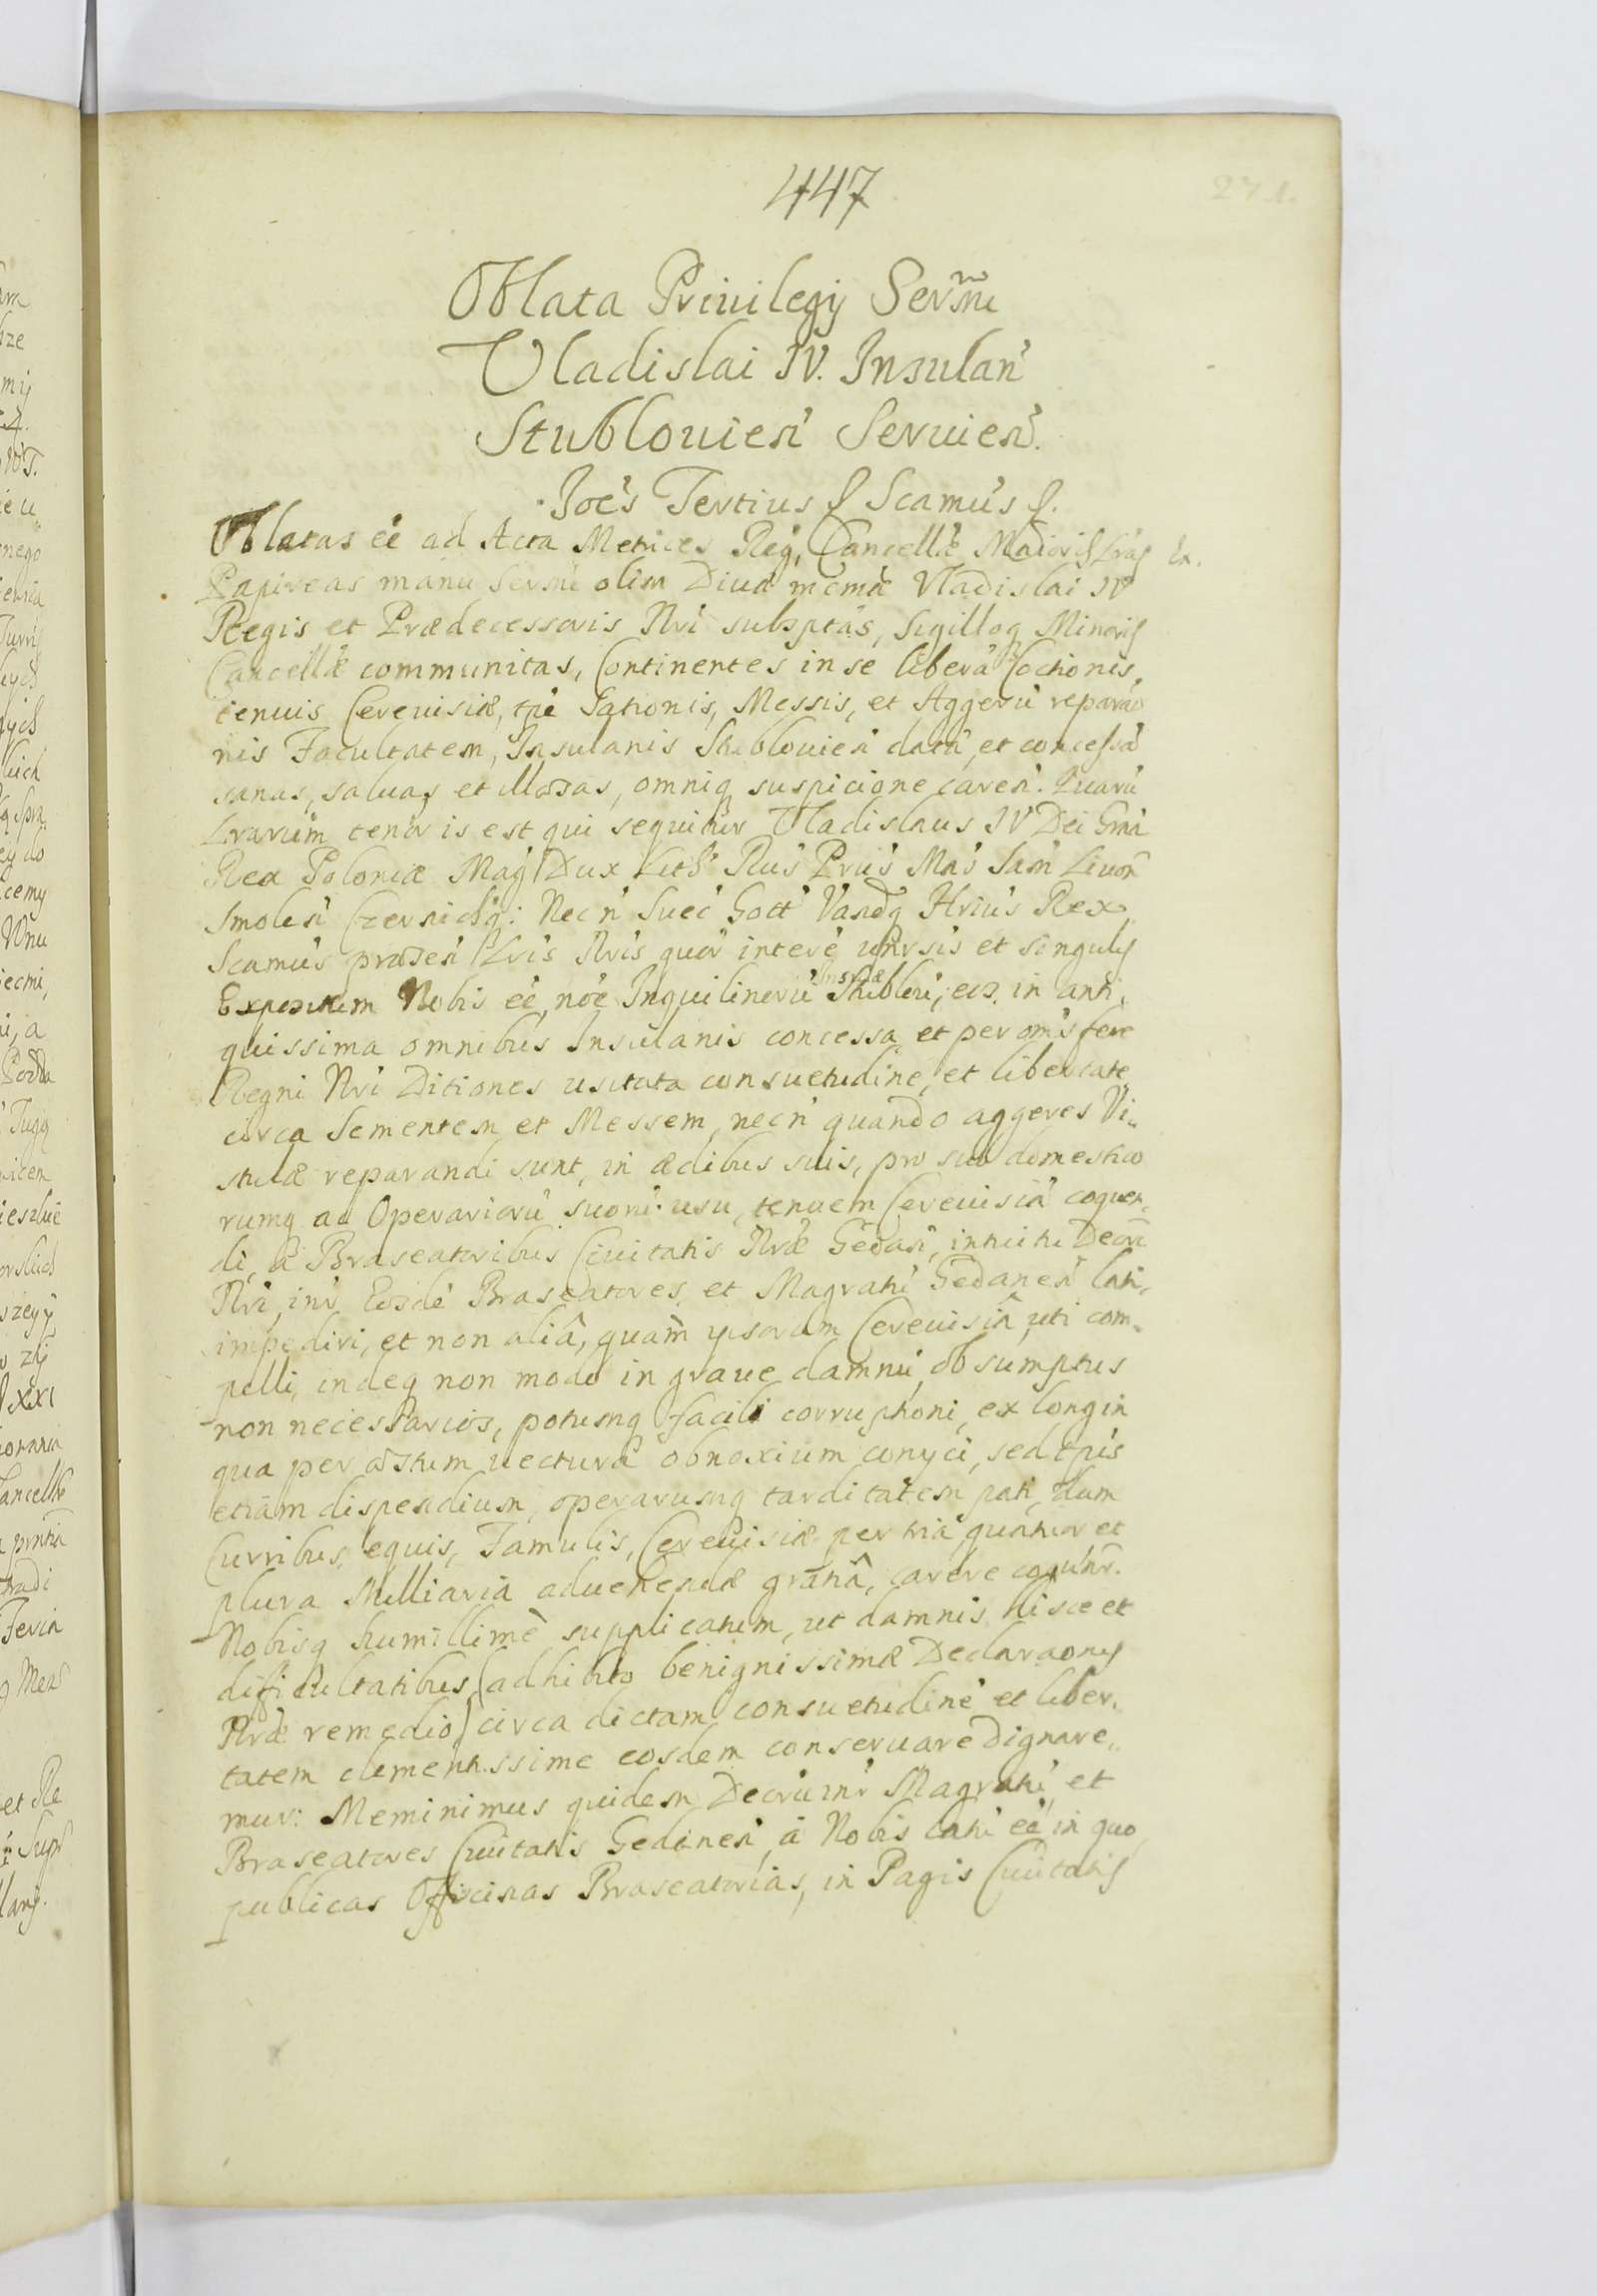 447
271.
Oblata Priuilegÿ Serm̃i
Vladislai IV. Insulan̉
Stublouien̉ Seruien̉.
Joe̕s Tertius
Oblatas ee̕ ad Acta Metrices Reg, Cancellæ Maioris Lras Ex.
Papireas manu Sermi olim Diuæ memæ Vladislai IV
Regis et Prædecessoris Nri subsptas, Sigilloq Minoris
Cancellæ communitas, Continentes in se liberã Coctionis,
tenuis Cereuisiæ, tpe Sationis, Messis, et Aggerũ reparao
nis Facultatem, Insulanis Stublouien̉ datã, et concessã
sanas, saluas et illæsas, omniq suspicione caren̉. Quarũ
Lrarum tenor is est qui sequitur Vladislaus IV Dei Gra
Rex Poloniæ Mag Dux Lith Rus Prus Mas Sam Livon
Smolen̉ Czernichq: Nec n̉ Suec Gott Vandq Hrius Rex
Scamus præsen̉ Lris Nris quor intere unrsis et singulis
Expositum Nobis ee, noe Inquilinorũ Insulæ Stublou, eos in anti,
quissima omnibus Insulanis concessa et per oms fere
Regni Nri Ditiones usitata consuetudine, et libertate
circa Sementem et Messem, nec n̉ quando aggeres Vi„
stulæ reparandi sunt, in ædibus suis, pro suo domestico
rumq ac Operariorũ suorũ usu, tenuem Cereuisiã coquen„
di, a Braseatoribus Ciuitatis Nræ Gedan̉, intuitu Decri
Nri, inr Eosde Braseatores et Magratũ Gedanen̉ lati„
impediri, et non aliâ, quàm ipsorum Cereuisiâ uti com„
pelli, indeq non modo in graue damnũ ob sumptus
non necessarios, potumq facili corruptioni, ex longin
qua per æstum uecturâ obnoxium conyci, sed tpis
etiam dispendium, operarumq tarditatem pati, dum
Curribus, equis, Famulis, Cereuisiæ per tria quatuor et
plura Milliaria aduehendæ gratiâ, carere cogũnr.
Nobisq humillimè supplicatum, ut damnis hisce et
difficultatibus (adhibito benignissimæ Declaraonis
Nræ remedio) circa dictam consuetudinẽ et liber„
tatem clementissime eosdem conseruare Dignare„
mur: Meminimus quidem Decrũ inr Magratũ, et
Braseatores Ciuitatis Gedanen̉, a Nobis latũ ee, in quo
publicas Officinas Braseatorias, in Pagis Ciuitatis